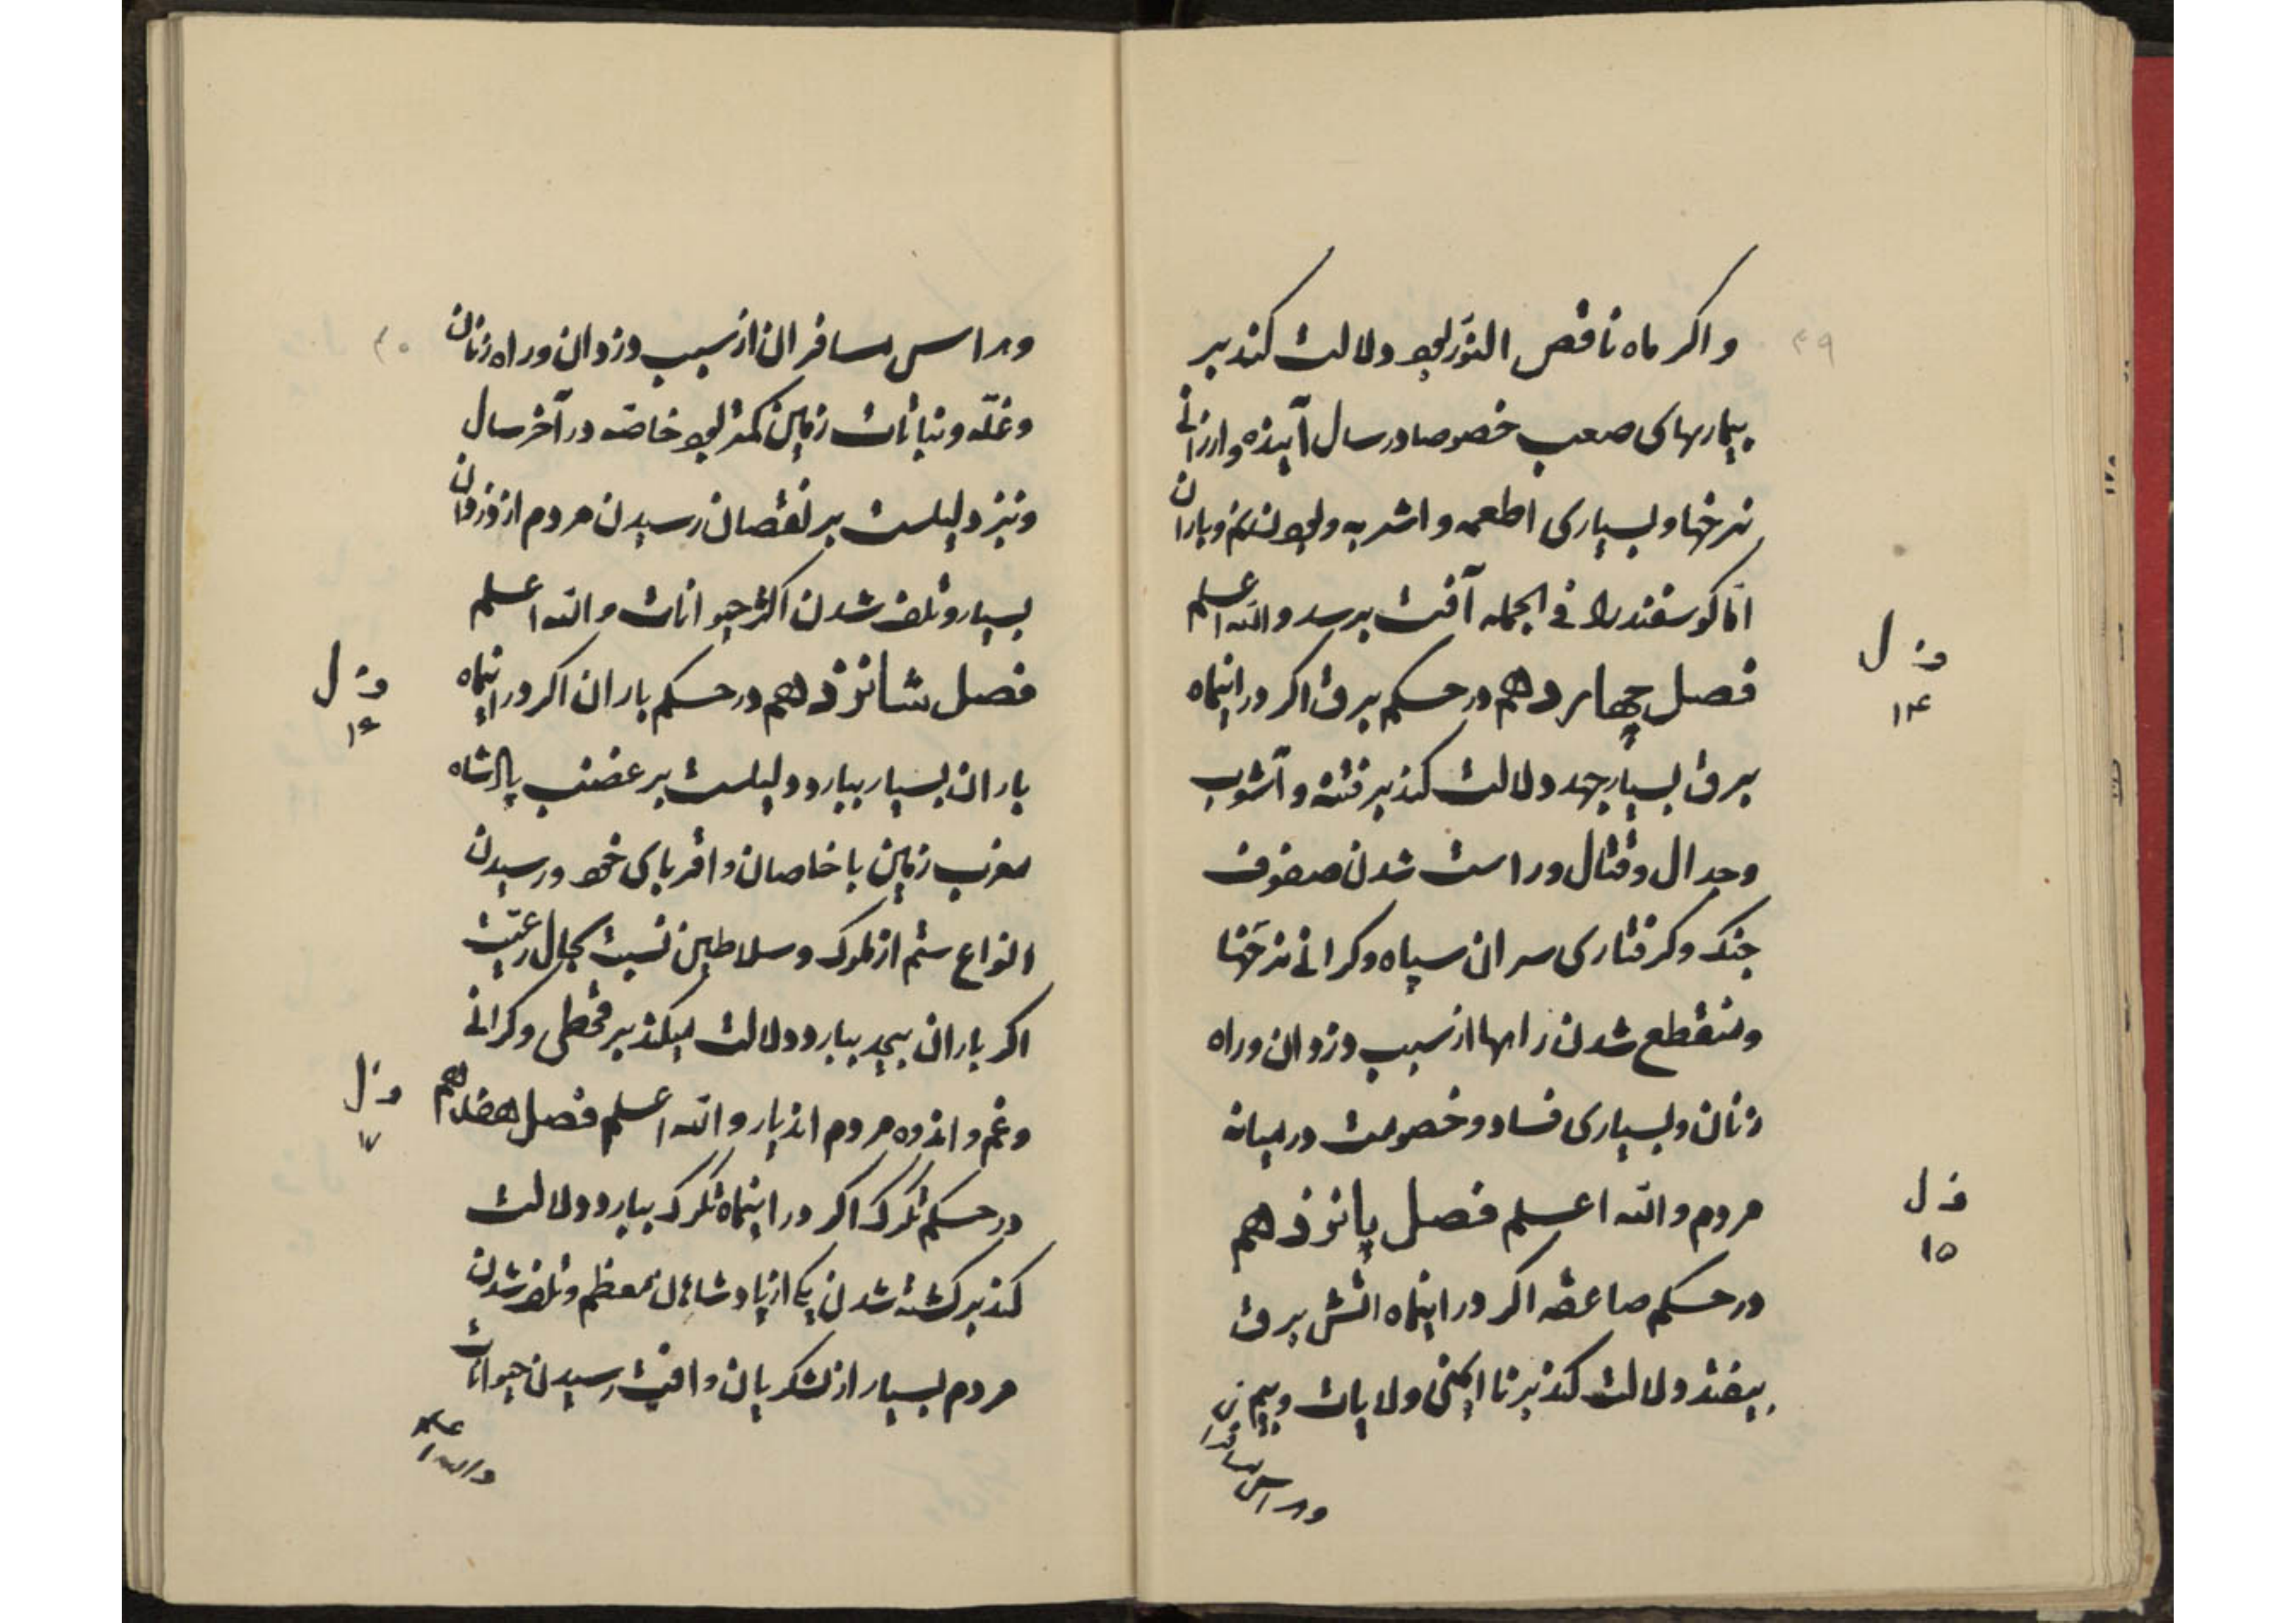 ۴۹
واکر ماه ناقص النور بود دلالت کند بر
بیماریهای صعب خصوصا در سال آینده و ارزانی
نرخها و بسیاری اطعمه و اشربه و بودن نم و باران
اما کوسفند را فی الجمله آفت برسد والله اعلم
فصل چهاردهم در حکم برق اکر در اینماه
ف ل
۱۴
برق بسیار جهد دلالت کند بر فتنه و آشوب
وجدال وقتال وراست شدن صفوف
جنک وکرفتاری سران سپاه وکرانی نرخها
ومنقطع شدن راهها از سبب دزدان وراه
زنان وبسیاری فساد وخصومت در میانه
مردم والله اعلم فصل پانزدهم
ف ل
۱۵
در حکم صاعقه اکر در اینماه اتش برق
بیفتد دلالت کند بر نا ایمنی ولایات وبیم
وهراس مسافران
۵۰
وهراس مسافران از سبب دزدان وراه زنان
وغله ونباتات زمین کمتر بود خاصه در آخر سال
ونیز دلیلست بر نقصان رسیدن مردم از دزدان
بسیار وتلف شدن اکثر حیوانات والله اعلم
فصل شانزدهم در حکم باران اکر در اینماه
ف ل
۱۶
باران بسیار ببارد دلیلست بر غضب پادشاه
مغرب زمین با خاصان واقربای خود ورسیدن
انواع ستم از ملوک وسلاطین نسبت بحال رعیت
اکر باران بیحد ببارد دلالت میکند بر قحطی وکرانی
وغم واندوه مردم اندیار والله اعلم فصل هفدهم
ف ل
۱۷
در حکم تکرک اکر در اینماه تکرک ببارد دلالت
کند بر کشته شدن یکی از پادشاهان معظم وتلف شدن
مردم بسیار از لشکریان وافت رسیدن حیوانات
والله اعلم